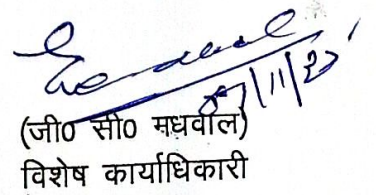 07/11/23
(जी0 सी0 मधवाल)
विशेष कार्याधिकारी